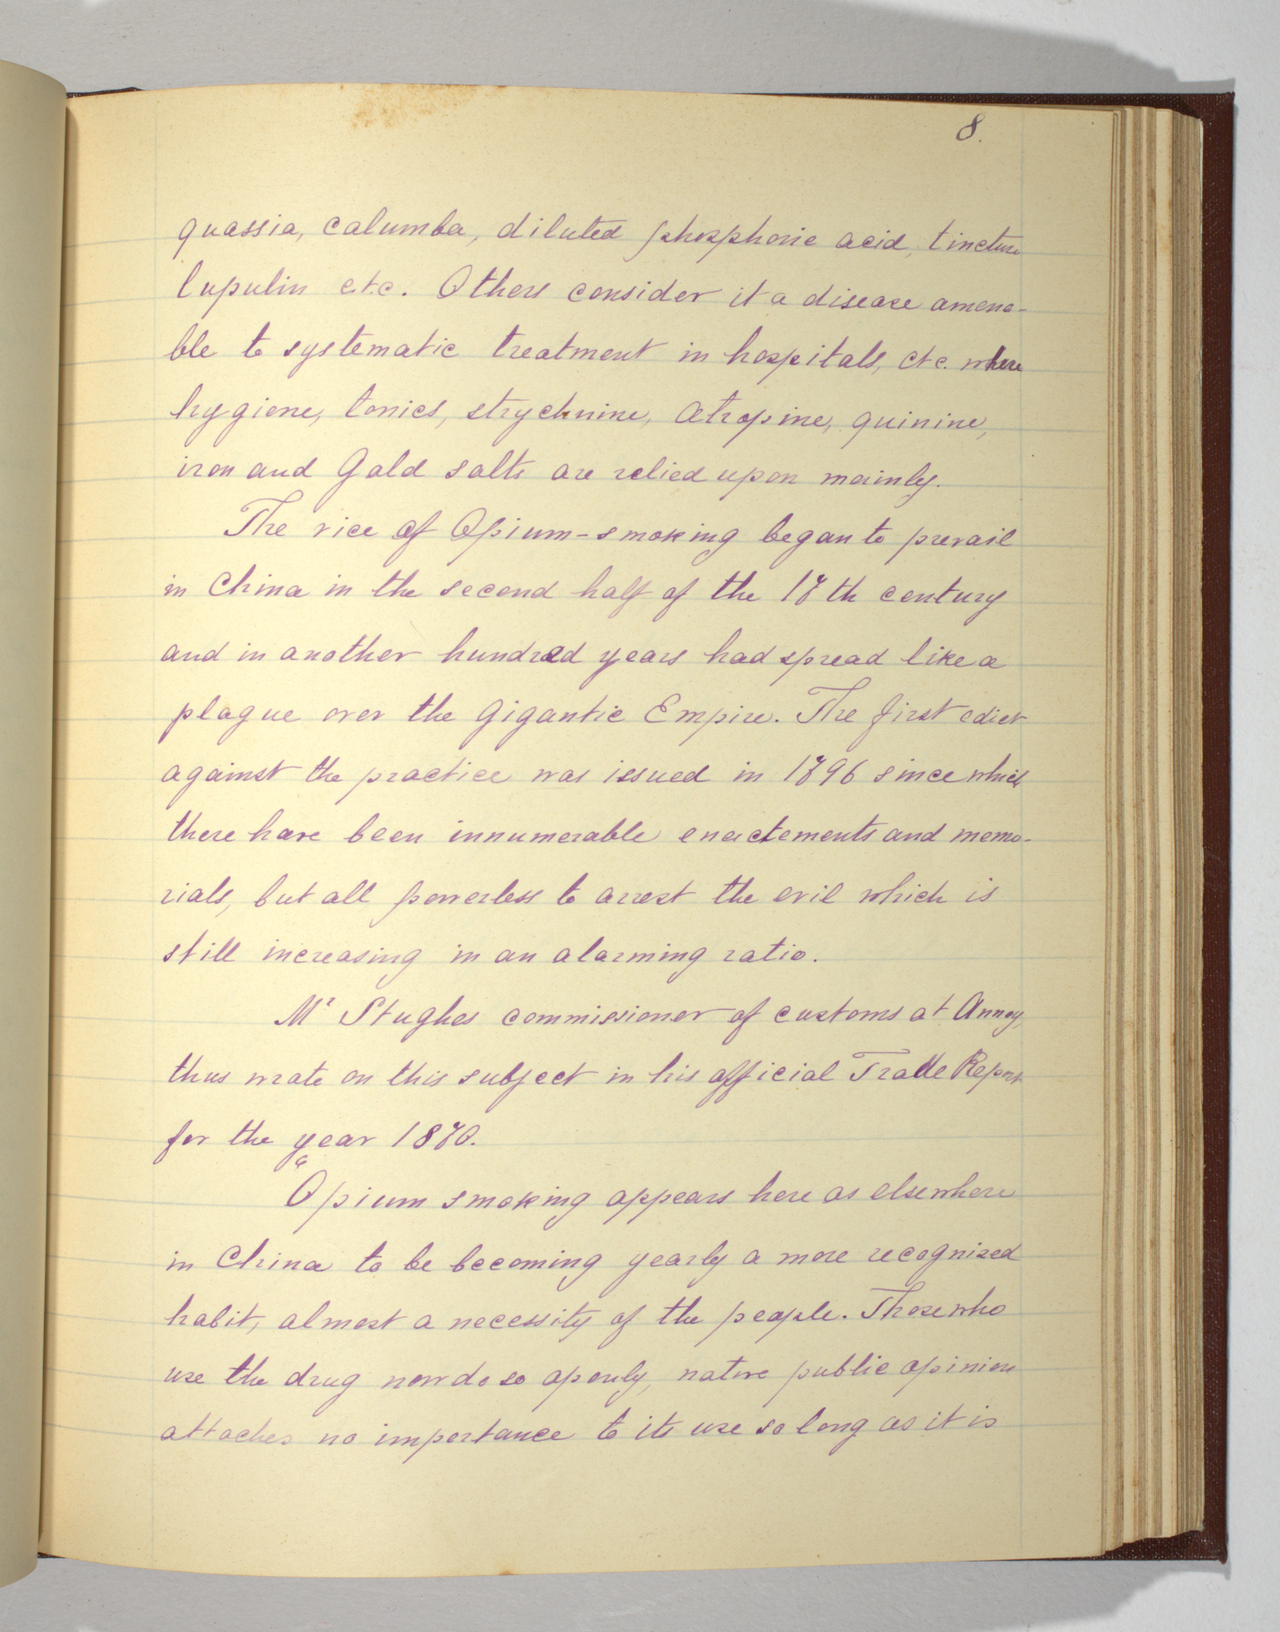 8.
quassia, calumba, diluted phosphoric acid, tincture
lupulin etc. Others consider it a disease amena-
ble to systematic treatment in hospitals, etc. where
hygiene, tonics, strychnine, Atropine, quinine,
iron and Gold salts are relied upon mainly.
The vice of Opium-smoking began to prevail
in China in the second half of the 17th century
and in another hundred years had spread like a
plague over the Gigantic Empire. The first edict
against the practice was issued in 1796 since which
there have been innumerable enactements and memo-
rials, but all powerless to arrest the evil which is
still increasing in an alarming ratio.
Mr Stughes commissioner of customs at Annoy,
thus wrote on this subject in his official Trade Report
for the year 1870.
"Opium smoking appears here as elsewhere
in China to be becoming yearly a more recognized
habit, almost a necessity of the people. Those who
use the drug now do so openly, native public opinion
attaches no importance to its use so long as it is